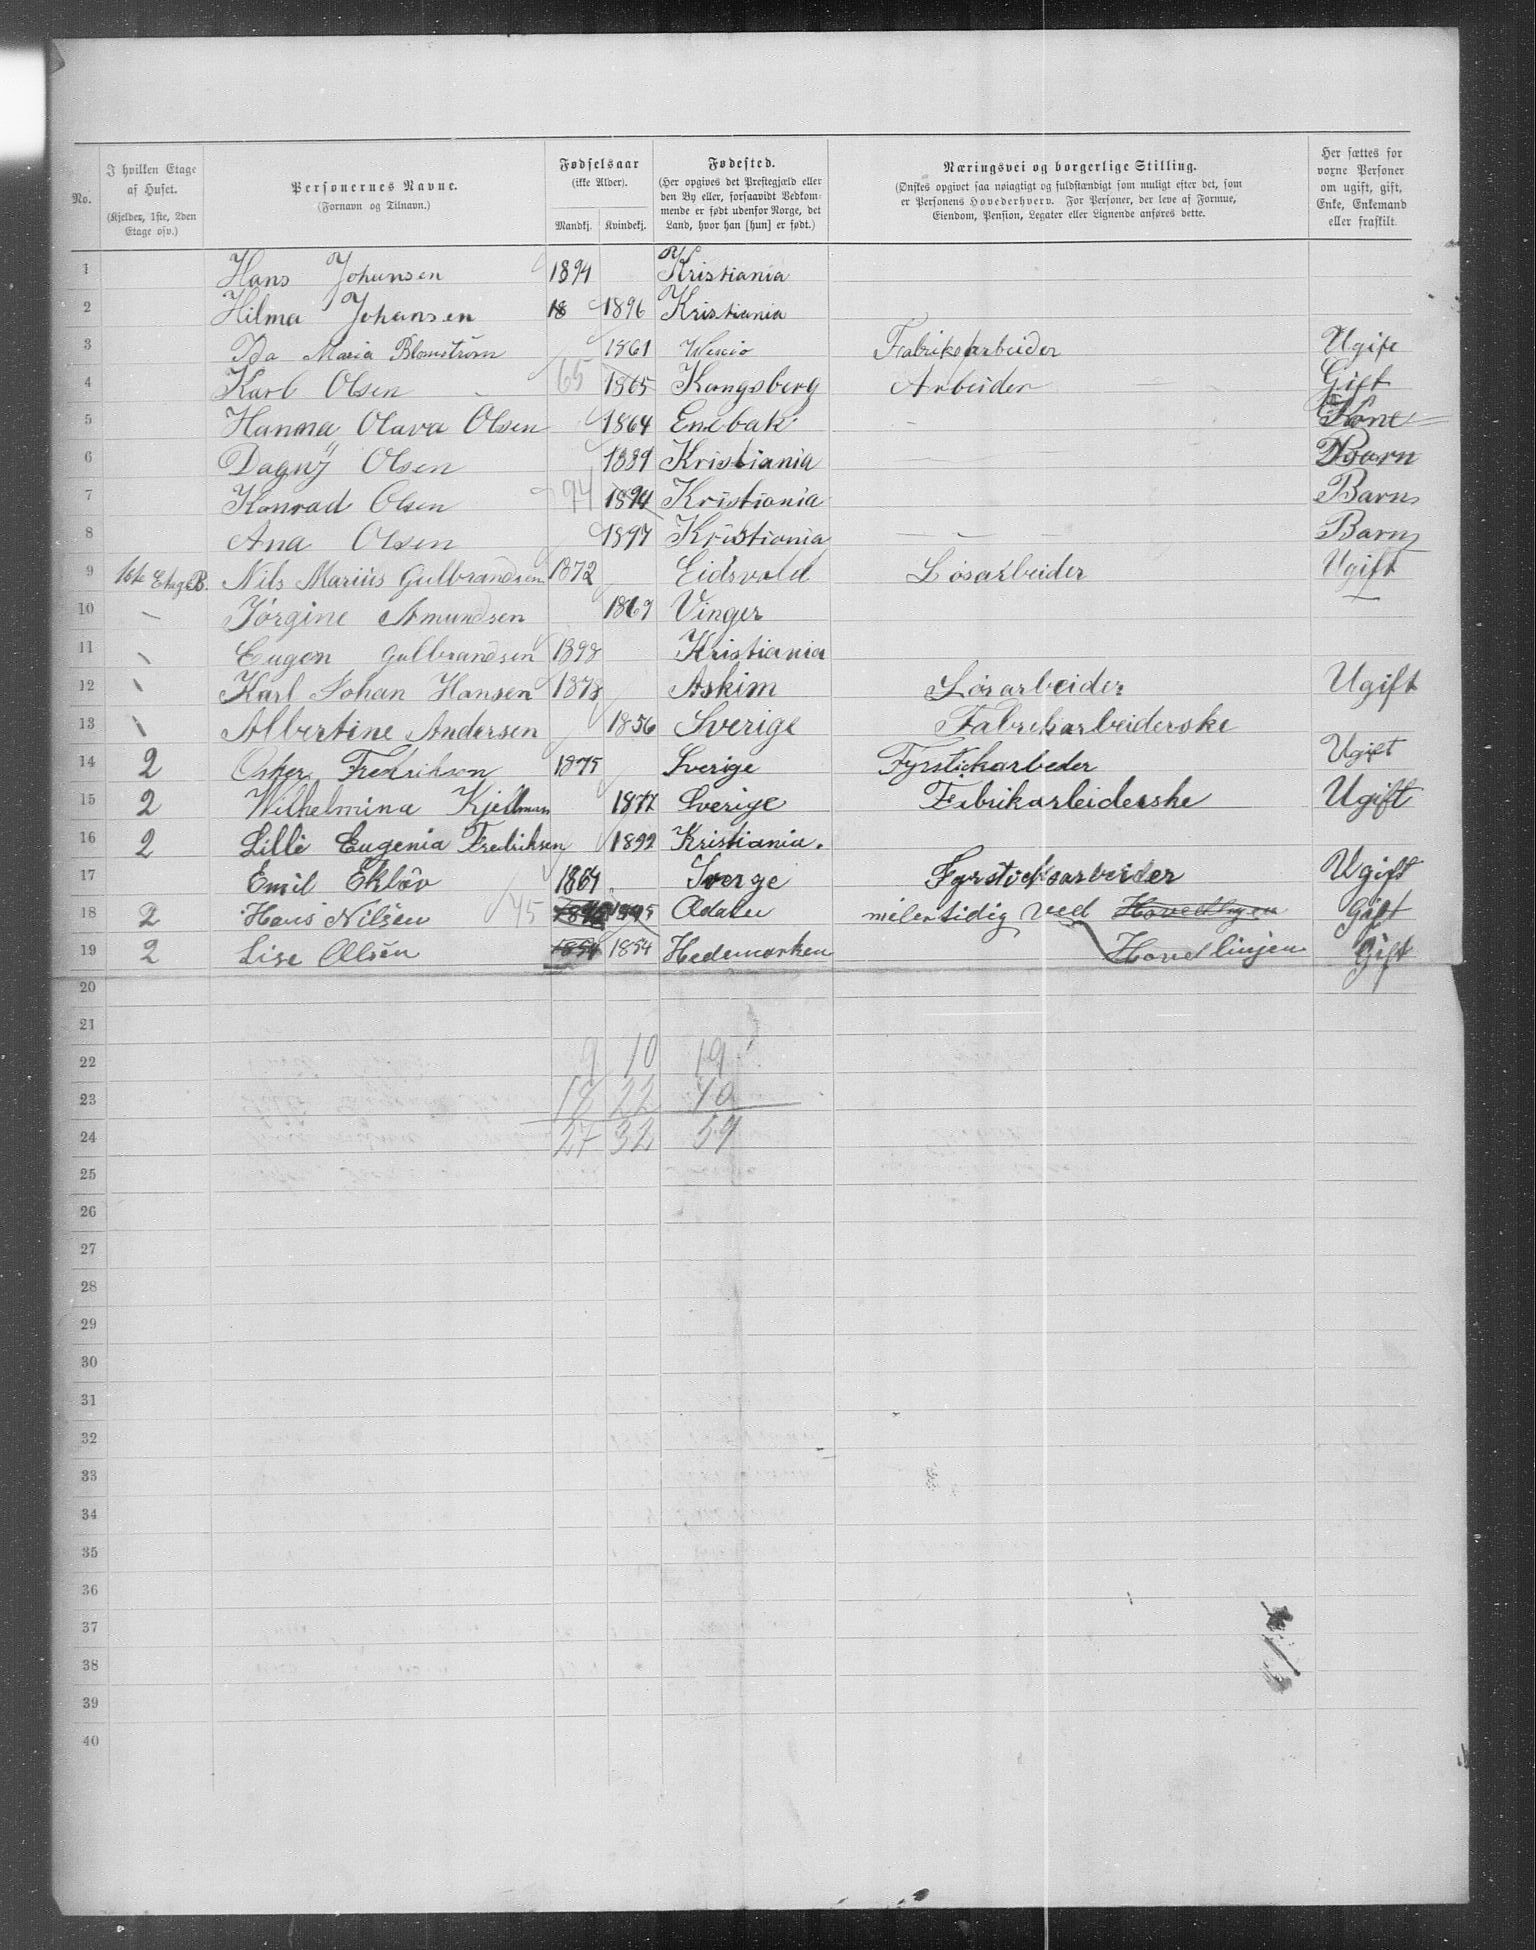 No.
I hvilken Etage af Huset.
(Kjelder, 1ste, 2den Etage osv.)
Personernes Navne.
(Fornavn og Tilnavn.)
Fødselsaar
(ikke Alder).
Mandkj. Kvindekj.
Fødested.
(Her opgives det Prestegjæld eller
den By eller, forsaavidt Vedkom-
mende er født udenfor Norge, det
Land, hvor han [hun] er født.)
Næringsvei og borgerlige Stilling.
(Ønskes opgivet saa nøiagtigt og fuldstændigt som muligt efter det, som
er Personens Hovederhverv. For Personer, der leve af Formue,
Eiendom, Pension, Legater eller Lignende anføres dette.
Her sættes for
voxne Personer
om ugift, gift,
Enke, Enkemand
eller fraskilt.
1 Hans Johansen 1894 Kristiania
2 Hilma Johansen 18 1896 Kristiania
3 Ida Maria Blomström 1861 Wexiö Fabriksarbeider Ugift
4 Karl Olsen 65 1865 Kongsberg Arbeider Gift
5 Hanna Olava Olsen 1864 Enebak Kone
6 Dagny Olsen 1889 Kristiania Barn
7 Konrad Olsen 94 1894 Kristiania Barn
8 Ana Olsen 1897 Kristiania Barn
9 1ste Etage B. Nils Marius Gulbrandsen 1872 Eidsvold Løsarbeider Ugift
10 — Jørgine Amundsen 1869 Vinger —
11 \ Eugen Gulbrandsen 1898 Kristiania
12 \ Karl Johan Hansen 1878 Askim Løsarbeider Ugift
13 \ Albertine Andersen 1856 Sverige Fabrikarbeiderske
14 2 Osker Fredrikson 1875 Sverige Fyrstickarbeder Ugift
15 2 Wilhelmina Kjellman 1877 Sverige Fabrikarbeiderske Ugift
16 2 Lilli Eugenia Fredriksen 1899 Kristiania.
17 Emil Eklöv 1864 Sverge Fyrsticksarbeider Ugift
18 2 Hans Nilsen 45 1845 Odalen milertidig ved Hovedlinjen Gift
19 2 Lise Olsen 1854 1854 Hedemarken Hovedlinjen Gift
20
21
22 9 10 19
23 18 22 40
24 27 32 59
25
26
27
28
29
30
31
32
33
34
35
36
37
38
39
40